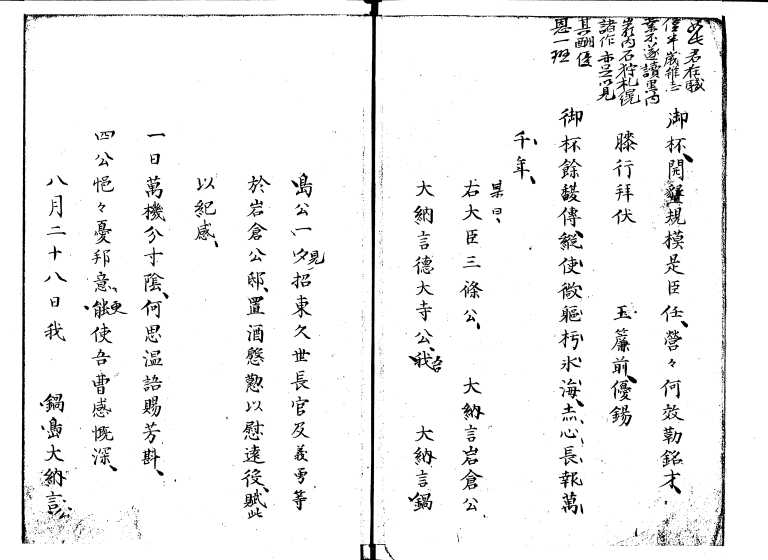 僅半歳雖志
業不遂讀集内
岩内石狩札幌
諸作亦足以見
其酬優
恩一班
御杯、開疆規模是臣任、營々何效勒銘才、
膝行拜伏　玉簾前、優錫
御杯餘馥傳、縱使微軀朽氷海、赤心長報萬
千年、
某曰、
右大臣三條公、　大納言岩倉公
大納言德大寺公、我公　大納言鍋
島公一夕見招東久世長官及義勇等
於岩倉公邸、置酒慇懃以慰遠役、賦此
以紀感、
一日萬機分寸陰、何思温語賜芳斟、
四公悒々憂邦意、更能使吾曹感慨深、
八月二十八日我　鍋島大納言公